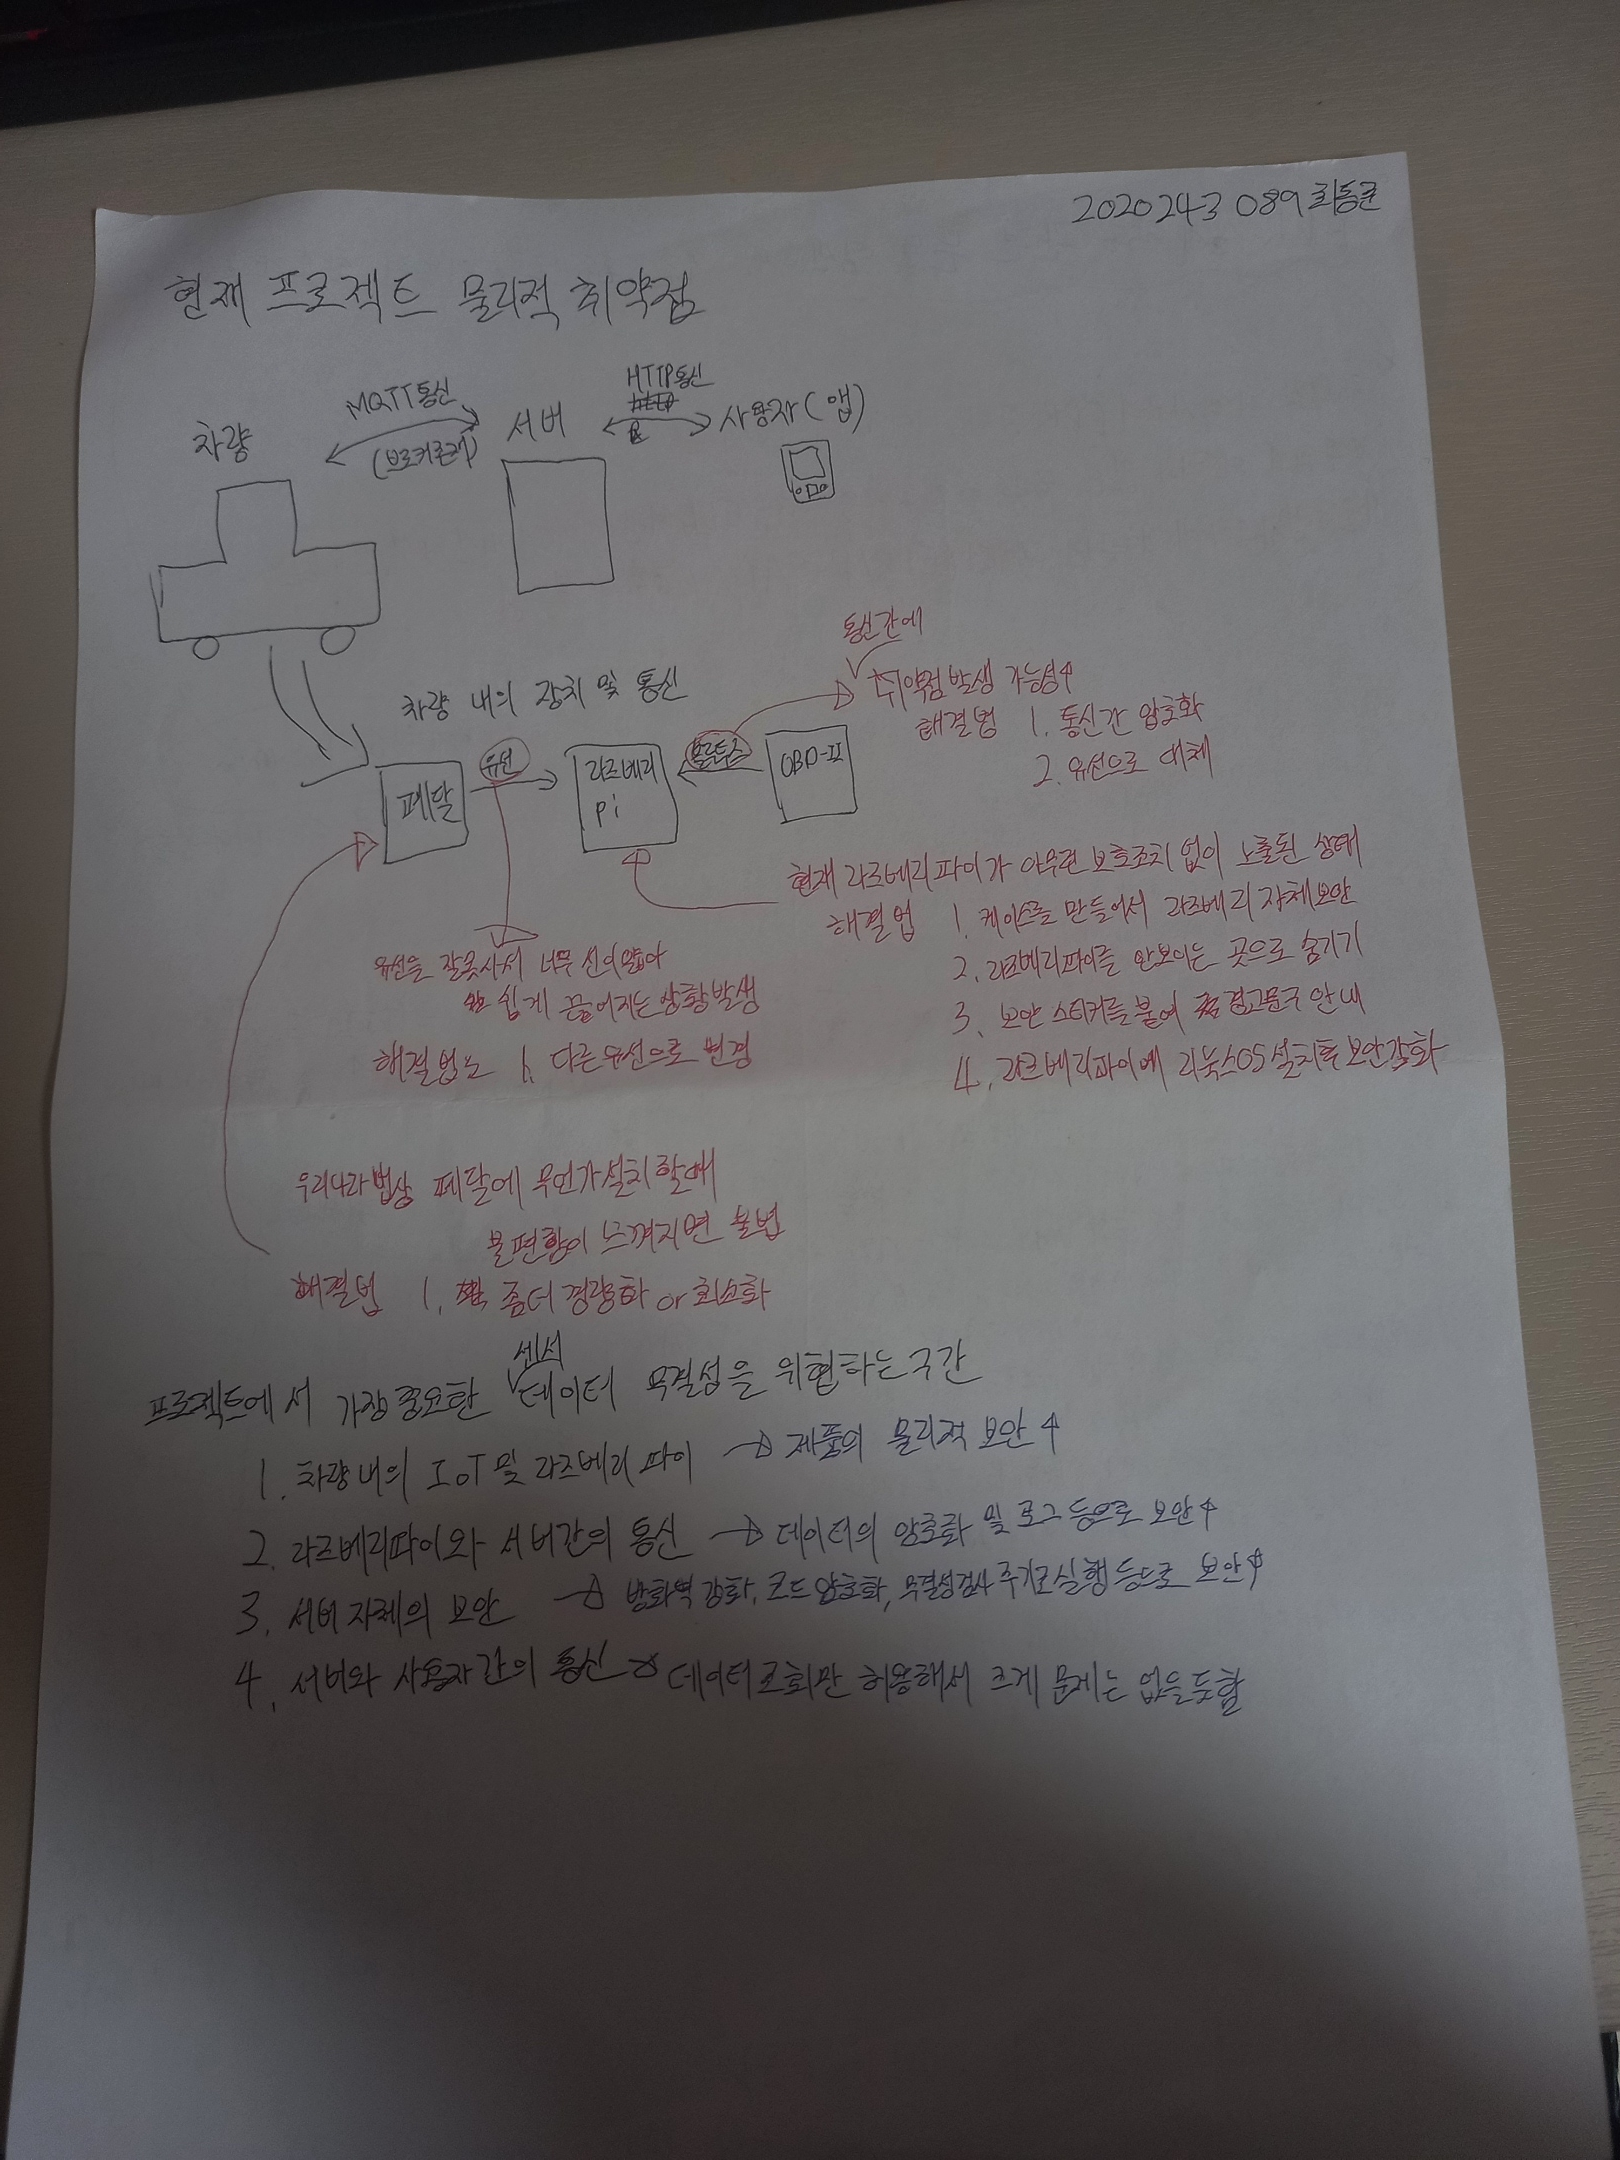 2020243089 최동준
현재 프로젝트 물리적 취약점
MQTT통신
(브로커존재)
HTTP통신
차량
서버
사용자(앱)
차량 내의 장치 및 통신
페달
유선
라즈베리
pi
블루투스
OBD-II
통신간에
취약점발생 가능성↑
해결법 1. 통신간 암호화
2. 유선으로 대체
현재 라즈베리파이가 아무런 보호조치 없이 노출된 상태
해결법 1. 케이스를 만들어서 라즈베리 자체보안
2. 라즈베리파이를 안보이는 곳으로 숨기기
3. 보안 스티커를 붙여 경고문구 안내
4. 라즈베리파이에 리눅스OS설치후 보안강화
유선을 잘못사서 너무 선이얇아
쉽게 끊어지는 상황발생
해결법은 1. 다른유선으로 변경
우리나라법상 페달에 무언가설치할때
불편함이 느껴지면 불법
해결법 1. 좀더 경량화 or 최소화
프로젝트에서 가장중요한 센서 데이터 무결성을 위협하는구간
1. 차량내의 IoT 및 라즈베리파이 → 제품의 물리적 보안↑
2. 라즈베리파이와 서버간의 통신 → 데이터의 암호화 및 로그 등으로 보안↑
3. 서버자체의 보안 → 방화벽강화, 코드암호화, 무결성검사 주기로실행 등으로 보안↑
4. 서버와 사용자간의 통신 → 데이터조회만 허용해서 크게 문제는 없을듯함